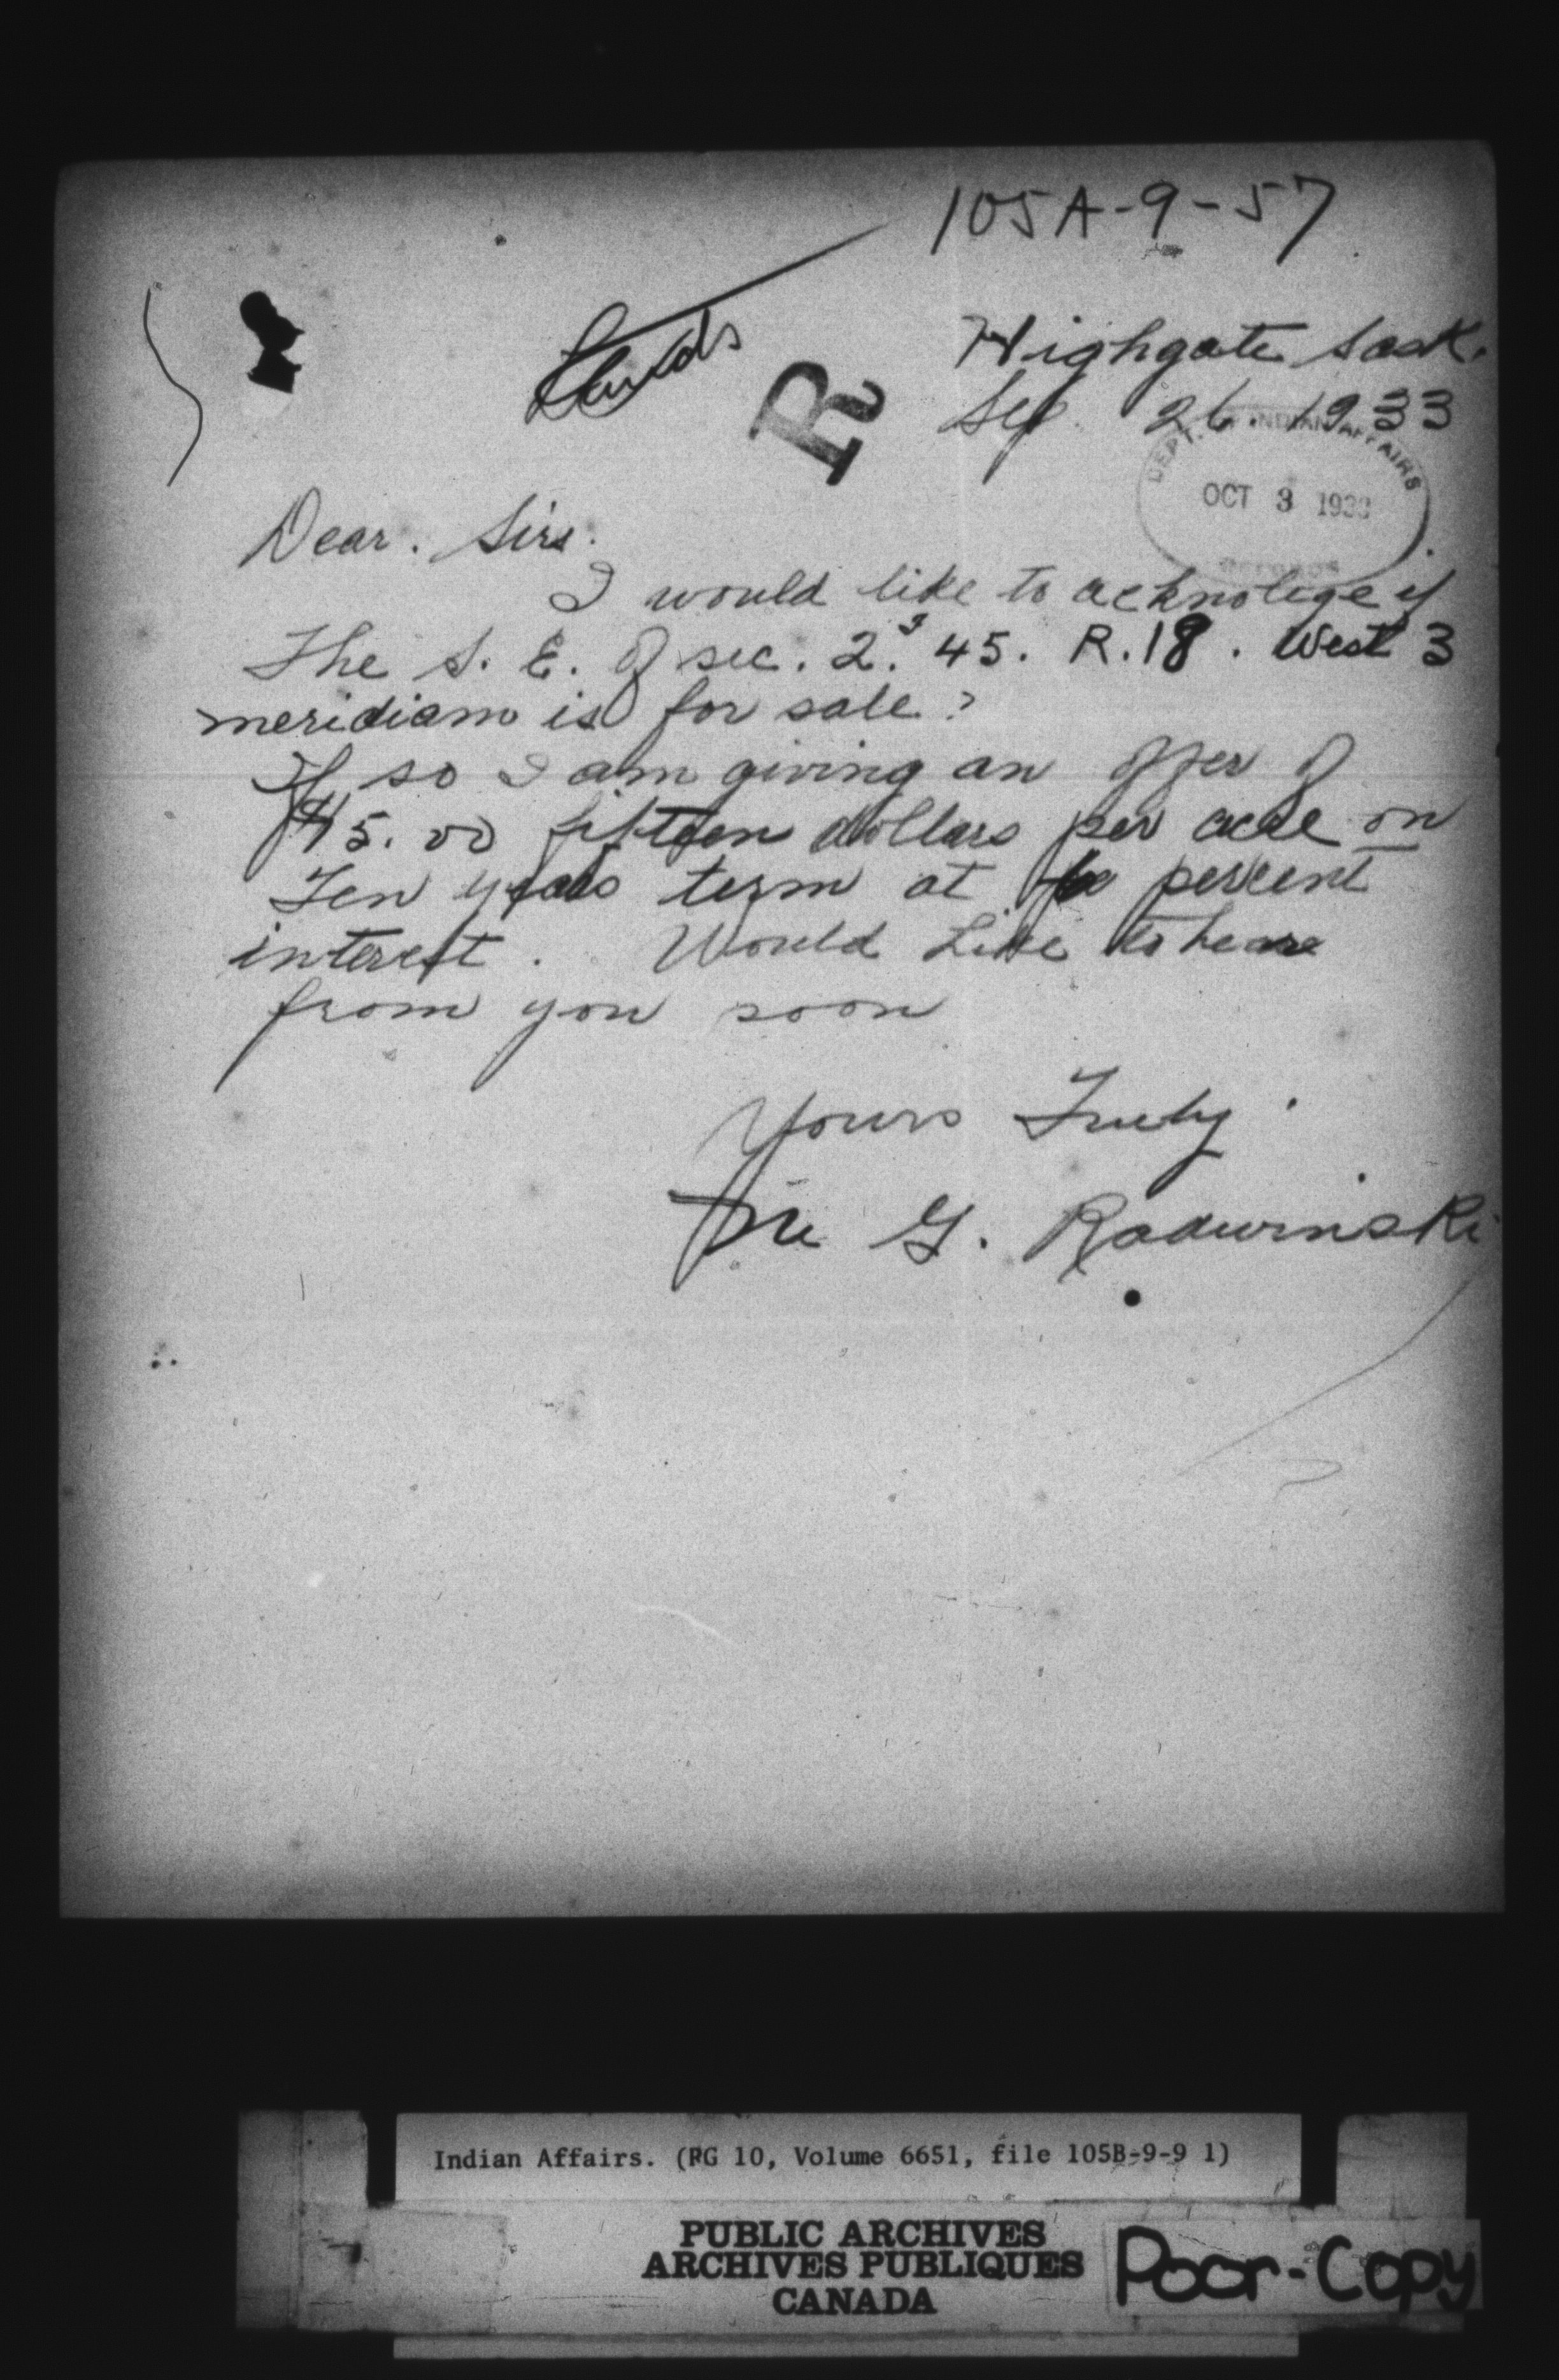 105A-9-57
Lands
R
Highgate Sask.
Sep. 26. 1933
DEPT. OF INDIAN AFFAIRS
OCT 3 1933
RECORDS
Dear. Sirs.
I would like to acknolege if
The S. E. of sec. 2. 45. R. 18. West 3
meridiam is for sale?
If so I am giving an offer of
$15.00 fifteen dollars per acre on
Ten years term at percent
interest. Would Like to heare
from you soon
Yours Truly.
Mr G. Radwinski
Indian Affairs. (RG 10, Volume 6651, file 105B-9-9 1)
PUBLIC ARCHIVES
ARCHIVES PUBLIQUES
CANADA
Poor-Copy